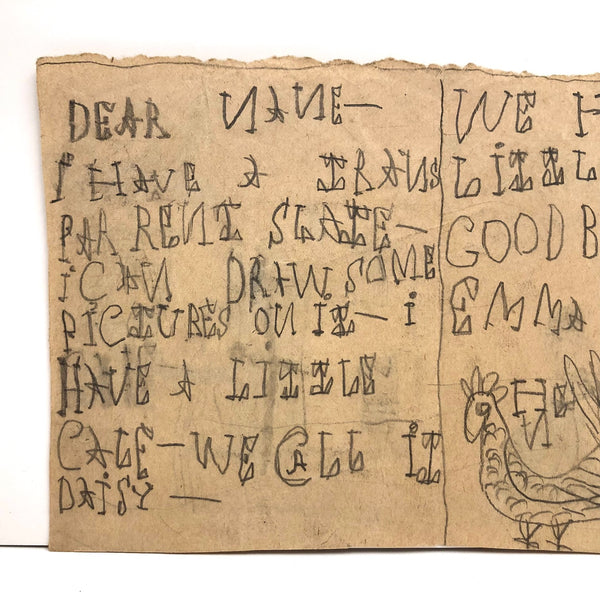 DEAR NANE—
i HAVE A TRANS
PARRENT SLATE—
i CAN DRAW SOME
PICTURES ON IT—i
HAVE A LITTLE
CALF—WE CALL iT
DAiSY —
WE H
LiTTL
GOOD B
EMMA
HE
N